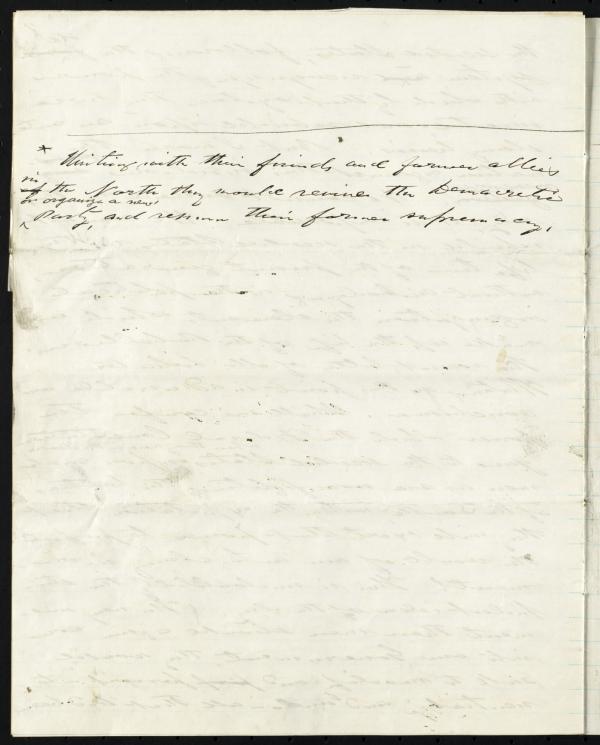 * Uniting with their friends and former allies
in the North they would revive the Democratic
or organize a new
^ Party, and resume their former supremacy.